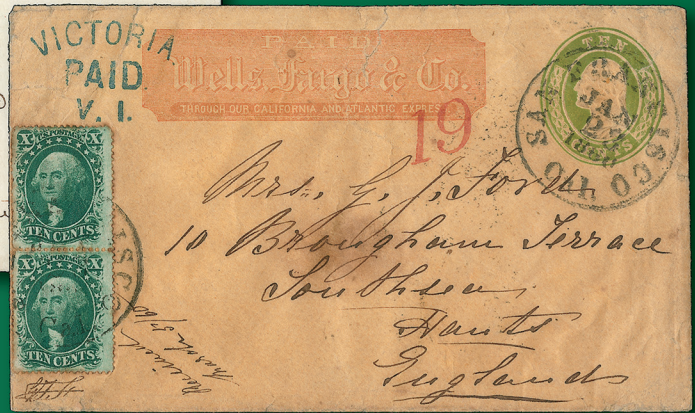 VICTORIA
PAID
V. I.
PAID
Wells, Fargo & Co.
THROUGH OUR CALIFORNIA AND ATLANTIC EXPRESS
TEN
SAN FRANCISCO
JAN
CAL
19
X U.S. POSTAGE X
TEN CENTS
X U.S. POSTAGE X
TEN CENTS
Mrs. G. J. Ford
10 Brougham Terrace
Southsea
Hants
England